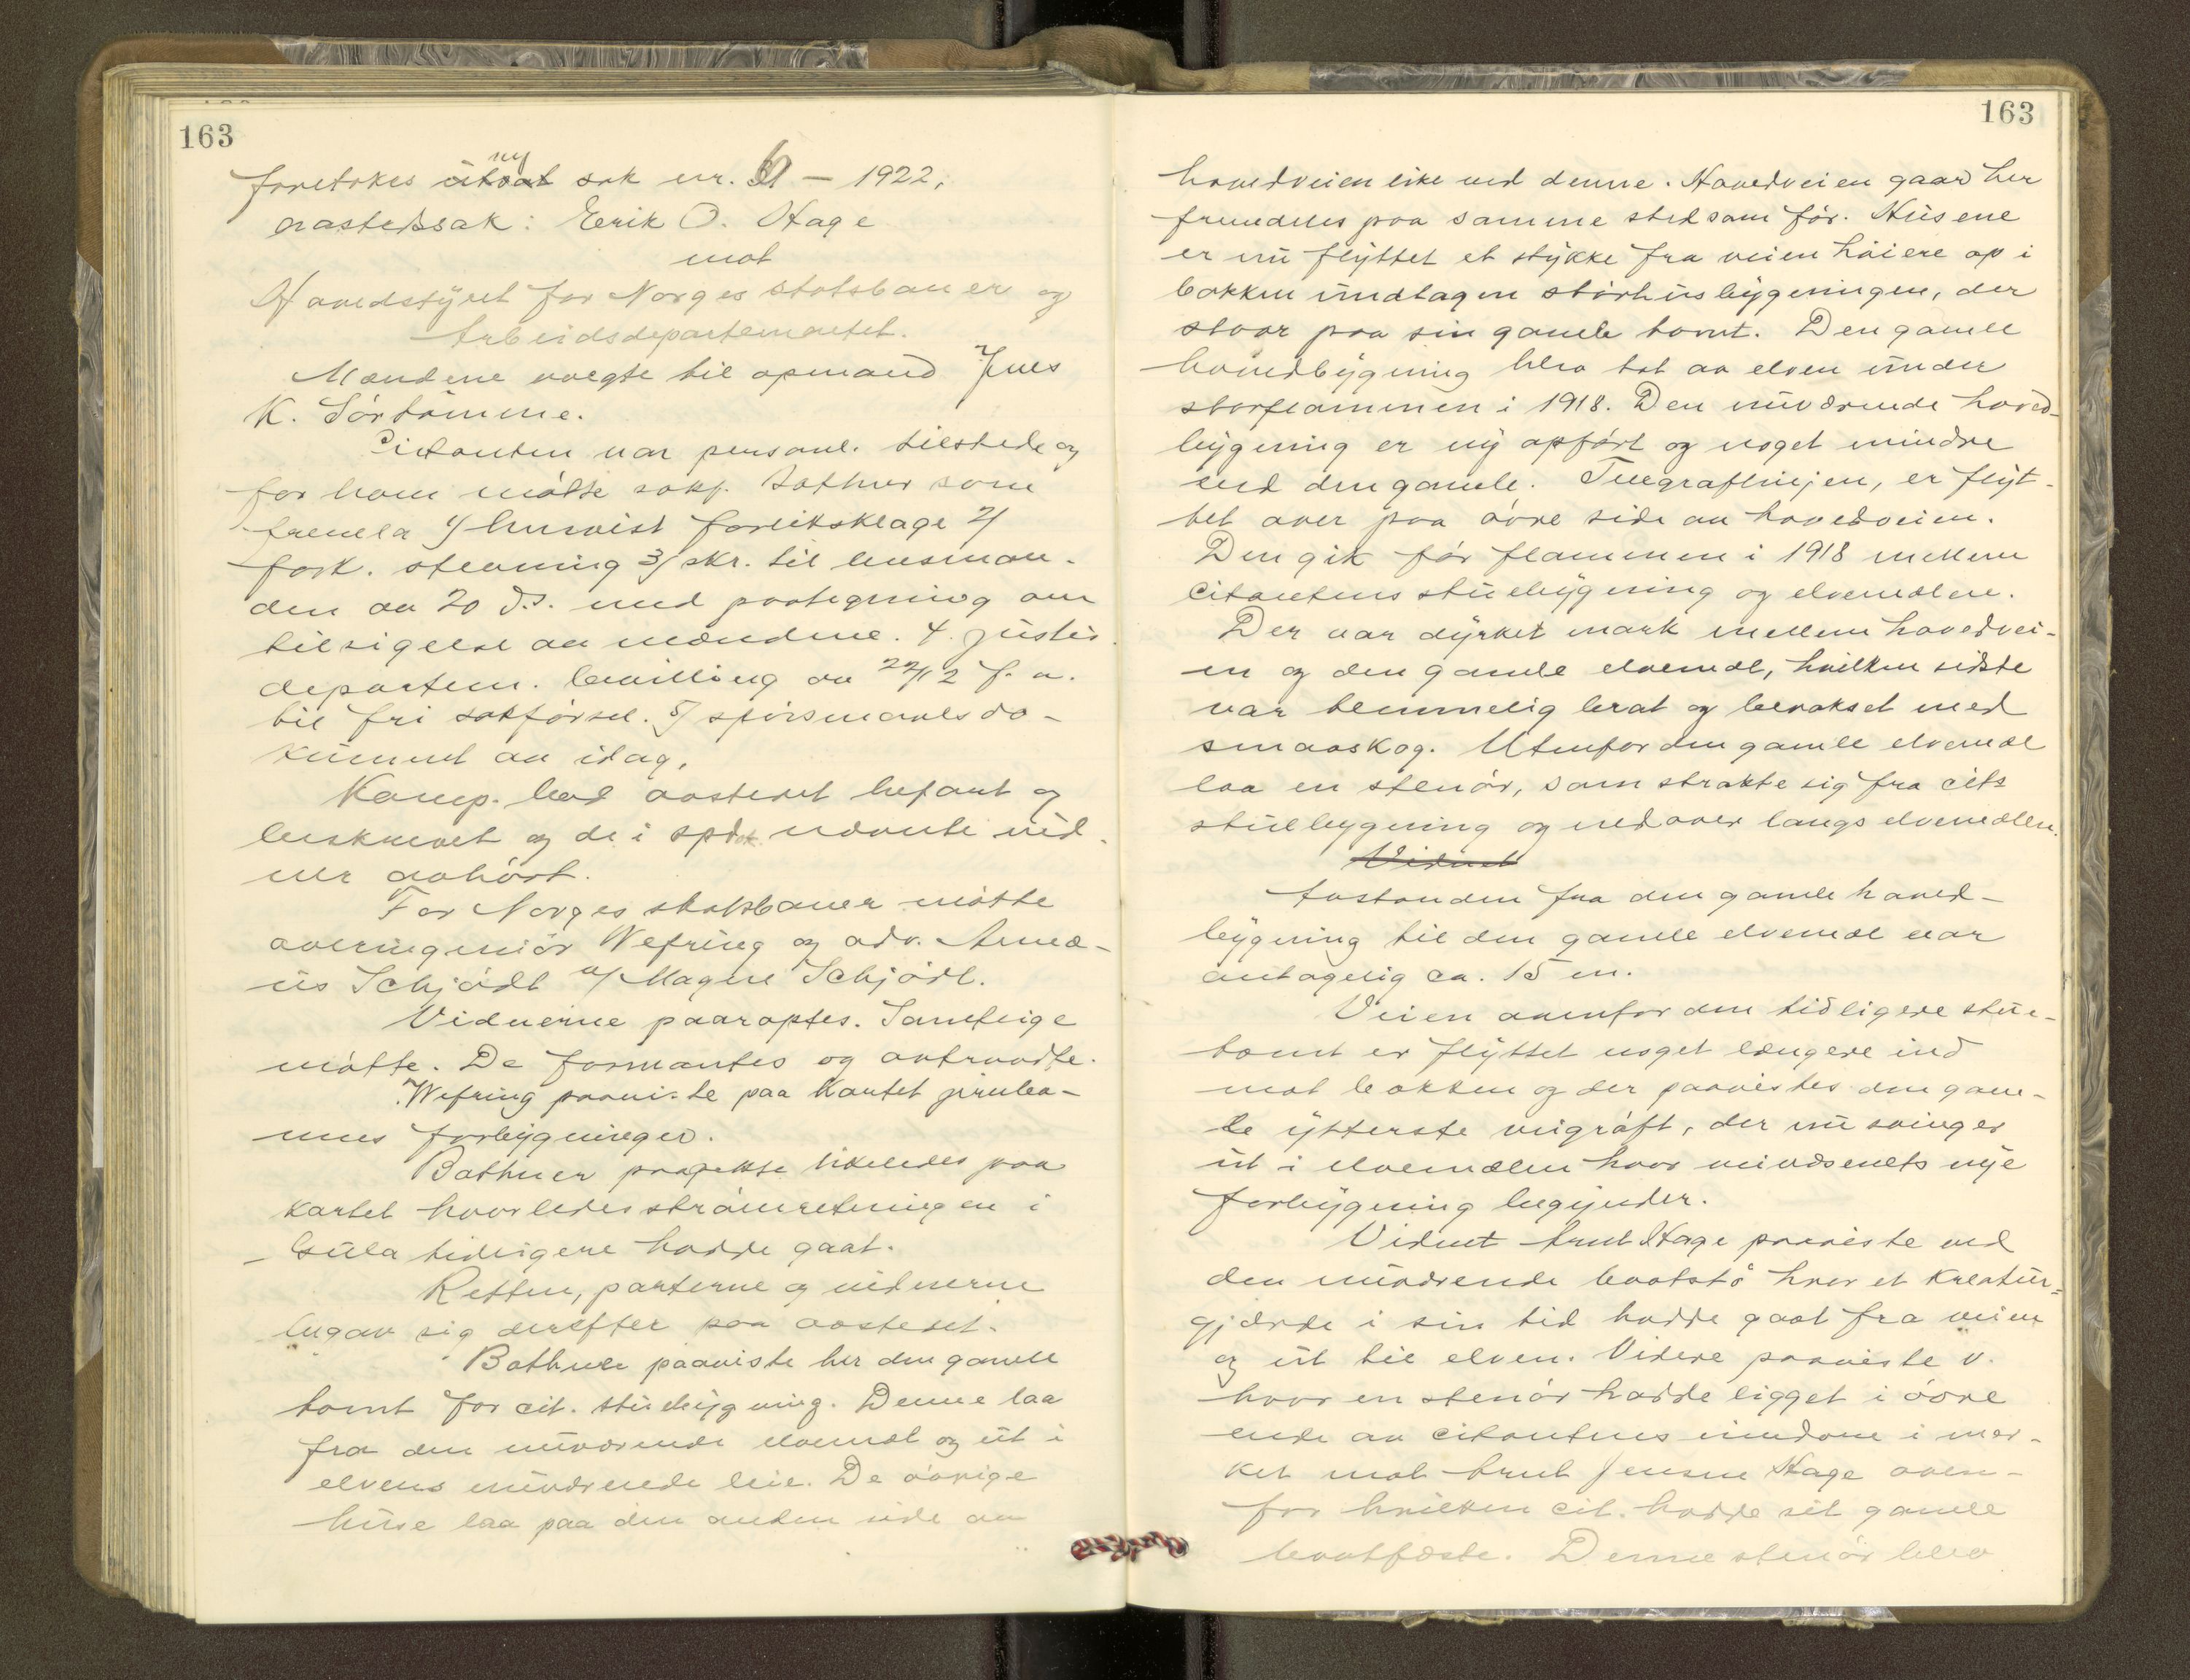 163
foretokes ny sak nr. 6 – 1922,
aastedssak: Erik O. Hage
mot
Hovedstyret for Norges statsbaner og
Arbeidsdepartementet.
Mændene valgte til opmand Jens
K. Sørtømme.
Citanten var personl. tilstede og
for ham møtte sakf. Bothner som
fremla 1/ henvist forliksklage 2/
fork. stevning 3/ skr. til lensman-
den av 20 ds. med paategning om
tilsigelse av mændene. 4. justis
departem. bevilling av 22/12 f. a.
til fri sakførsel. 5/ spørsmaalsdo-
kument av idag.
Komp. bad aastedet befart og
beskrevet og de i spdok nævnte vid-
ner avhørt.
For Norges statsbaner møtte
overingeniør Wefring og adv. Annæ-
us Schjødt v/ Magne Schjødt.
Vidnerne paaroptes. Samtlige
møtte. De formantes og avtraadte.
Wefring paaviste paa kartet jernba-
nens forbygninger.
Bothner paapekte likeledes paa
kartet hvorledes strømretningen i
Gula tidligere hadde gaat.
Retten, parterne og vidnerne
begav sig derefter paa aastedet.
Bothner paaviste her den gamle
tomt for cit. stuebygning. Denne laa
fra den nuværende elvemæl og ut i
elvens nuværende leie. De øvrige
huse laa paa den anden side av
163
hovedveien like ved denne. Hovedveien gaar her
fremdeles paa samme sted som før. Husene
er nu flyttet et stykke fra veien høiere op i
bakken undtagen størhusbygningen, der
staar paa sin gamle tomt. Den gamle
hovedbygning blev tat av elven under
storflommen i 1918. Den nuværende hoved-
bygning er ny opført og noget mindre
end den gamle. Telegraflinjen, er flyt-
tet over paa øvre side av hovedveien.
Den gik før flommen i 1918 mellem
citantens stuebygning og elvemælen.
Der var dyrket mark mellem hovedvei-
en og den gamle elvemæl, hvilken sidste
var temmelig brat og bevokset med
smaaskog. Utenfor den gamle elvemæl
laa en stenør, som strakte sig fra cits
stuebygning og nedover langs elvemælen.
Vidnet
Avstanden fra den gamle hoved-
bygning til den gamle elvemæl var
antagelig ca. 15 m.
Veien ovenfor den tidligere stue-
tomt er flyttet noget længere ind
mot bakken og der paavistes den gam-
le ytterste veigrøft, der nu svinger
ut i elvemælen hvor veivæsenets nye
forbygning begynder.
Vidnet Arnt Hage paaviste ved
den nuværende baatstø hvor et kreatur-
gjærde i sin tid hadde gaat fra veien
og ut til elven. Videre paaviste v.
hvor en stenør hadde ligget i øvre
ende av citantens eiendom i mer-
ket mot Arnt Jensen Hage oven-
for hvilken cit. hadde sit gamle
baatfæste. Denne stenør blev